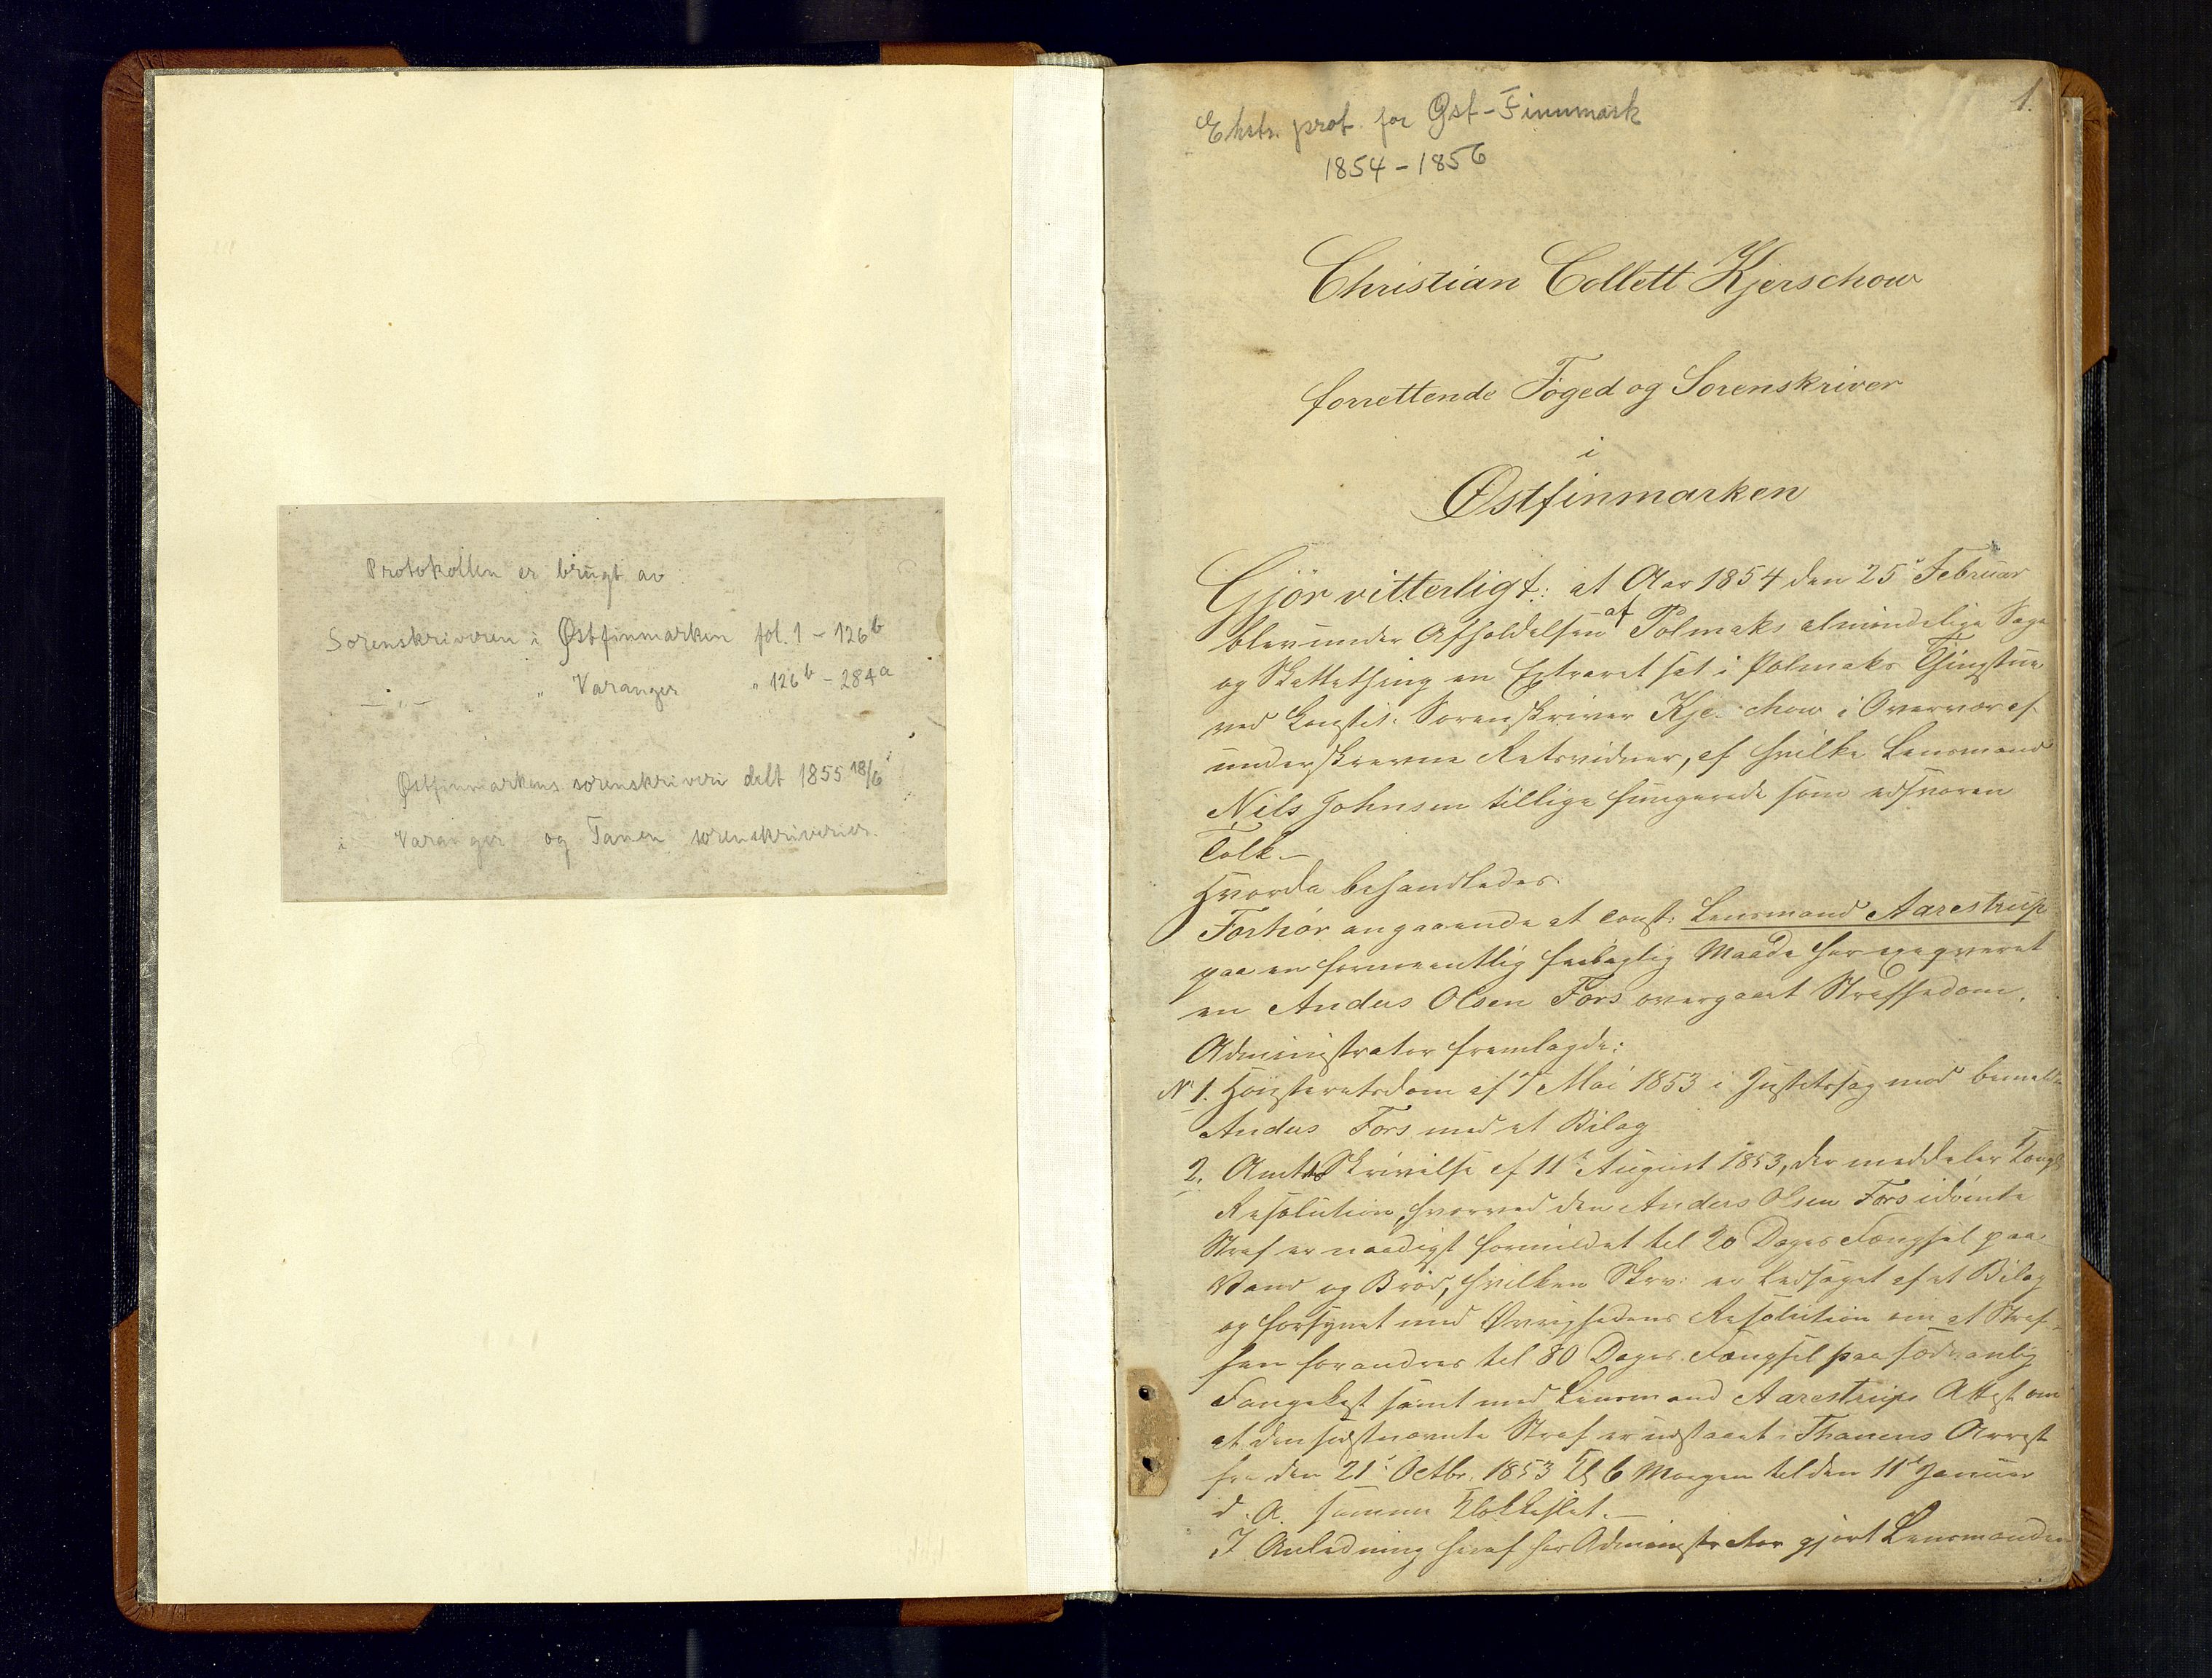 Protokollen er brugt av:
Sorenskriveren i Østfinmarken fol. 1 - 126b
— " — " Varanger " 126b - 284a
Østfinmarkens sorenskriveri delt 1855 18/6
i Varanger og Tanen sorenskriverier.
1.
Ekstr. prot. for Øst-Finnmark
1854 - 1856
Christian Collett Kjerschow
forrettende Foged og Sorenskriver
i
Østfinmarken
Gjör vitterligt: at Aar 1854 den 25de Februar
blev under Afholdelsen af Polmaks almindelige Sage
og Skattething en Extraret sat i Polmaks Thingstue
ved Constit: Sorenskriver Kjerschow i Overvær af
underskrevne Retsvidner, af hvilke Lensmand
Nils Johnsen tillige fungerede som edsvoren
Tolk. —
Hvorda behandledes:
Forhör angaaende at const: Lensmand Aarestrup
paa en formeentlig feilagtig Maade har exeqveret
en Anders Olsen Fors overgaaet Straffedom.
Administrator fremlagde:
No 1. Höiesteretsdom af 7 Mai 1853 i Justitssag mod bemeldte
Anders Fors med et Bilag
2. Amtsskrivelse af 11te August 1853, der meddeler Kongl:
Resolution, hvorved den Anders Olsen Fors idömte
Straf er naadigst formildet til 20 Dages Fængsel paa
Vand og Bröd, hvilken Skrv: er ledsaget af et Bilag
og forsynet med Övrighedens Resolution om at Straf-
fen forandres til 80 Dages Fængsel paa sædvanlig
Fangekost samt med Lensmand Aarestrups Attest om
at den sidstnævnte Straf er udstaaet i Thanens Arrest
fra den 21de Octbr. 1853 Kl 6 Morgen til den 11te Januar
d. A. samme Klokkeslet. —
I Anledning heraf har Administrator gjort Lensmanden